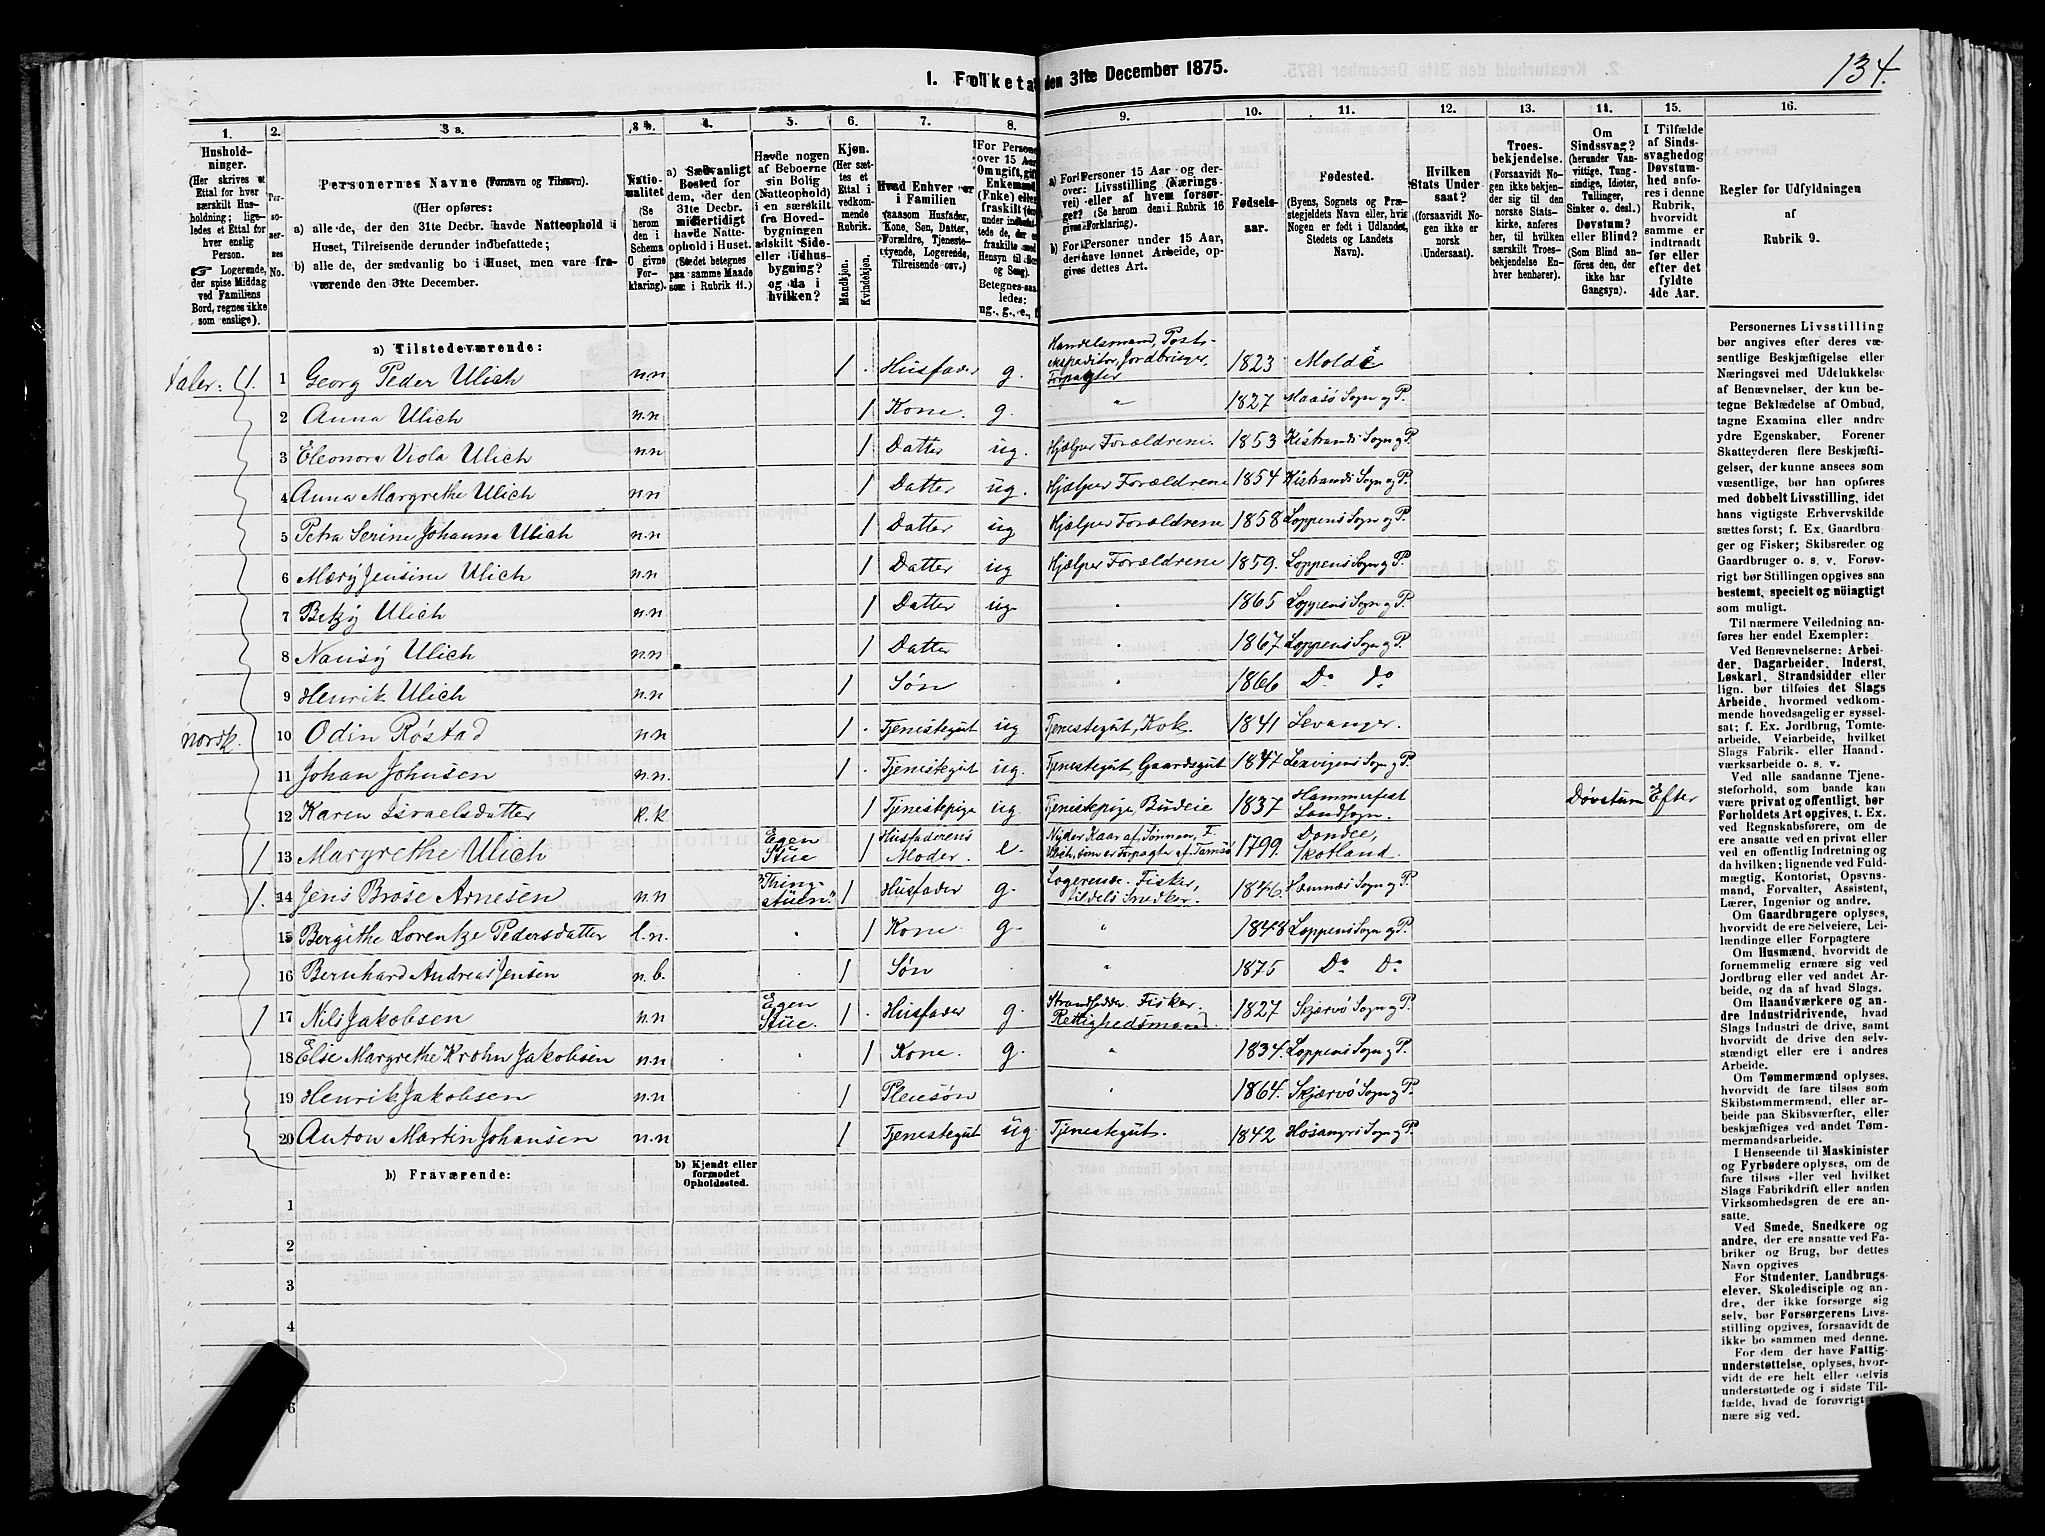 1. Folketal den 31te December 1875.
134.
1. 2. 3 a. 3 b. 4. 5. 6. 7. 8. 9. 10. 11. 12. 13. 14. 15. 16.
Husholdninger. (Her skrives et Ettal for hver særskilt Husholdning; ligeledes et Ettal for hver enslig Person. ☞ Logerende, der spise Middag ved Familiens Bord, regnes ikke som enslige).
Personernes No.
Personernes Navne (Fornavn og Tilnavn).
(Her opføres:
a) alle de, der den 31te Decbr. havde Natteophold i Huset, Tilreisende derunder indbefattede;
b) alle de, der sædvanlig bo i Huset, men vare fraværende den 31te December.
Nationalitet (Se herom den i Schema C givne Forklaring).
a) Sædvanligt Bosted for dem, der den 31te Decbr. midlertidigt havde Natteophold i Huset. (Stedet betegnes paa samme Maade som i Rubrik 11.)
Havde nogen af Beboerne sin Bolig (Natteophold) i en særskilt fra Hovedbygningen adskilt Side- eller Udhusbygning? og da i hvilken?
Kjøn. (Her sættes et Ettal i vedkommende Rubrik.
Mandkjøn. Kvindekjøn.
Hvad Enhver er i Familien (saasom Husfader, Kone, Søn, Datter, Forældre, Tjenestetyende, Logerende, Tilreisende osv.)
For Personer over 15 Aar Om ugift, gift, Enkemand (Enke) eller fraskilt
Betegnes saaledes: ug., g., e., f.
a) For Personer 15 Aar og derover: Livsstilling (Næringsvei) eller af hvem forsørget? (Se herom den i Rubrik 16 givne Forklaring).
b) For Personer under 15 Aar, der have lønnet Arbeide, opgives dettes Art.
Fødselsaar.
Fødested.
(Byens, Sognets og Præstegjeldets Navn eller, hvis Nogen er født i Udlandet, Stedets og Landets Navn).
Hvilken Stats Undersaat? (forsaavidt Nogen ikke er norsk Undersaat).
Troesbekjendelse. (Forsaavidt Nogen ikke bekjender sig til den norske Statskirke, anføres her, til hvilken særskilt Troesbekjendelse Enhver henhører).
Om Sindssvag? (herunder Vanvittige, Tungsindige, Idioter, Tullinger, Sinker o. desl.) Døvstum? eller Blind? (Som Blind anføres den, der ikke har Gangsyn).
I Tilfælde af Sindssvaghed og Døvstumhed anføres i denne Rubrik, hvorvidt samme er indtraadt før eller efter det fyldte 4de Aar.
Regler for Udfyldningen af Rubrik 9.
a) Tilstedeværende:
Taler: 1. 1 Georg Peder Ulich n.n 1 Husfader g. Handelsmand, Postexpeditor, Jordbruger, Forpagter 1823 Molde
2 Anna Ulich n.n 1 Kone. g. " 1827 Maasø Sogn og P.
3 Eleonora Viola Ulich n.n 1 Datter ug. Hjælper Forældrene. 1853 Kistrands Sogn og P.
4 Anna Margrethe Ulich n.n 1 Datter ug. Hjælper Forældrene 1854 Kistrands Sogn og P.
5 Petra Serine Johanna Ulich n.n 1 Datter ug Hjælper Forældrene 1858 Loppens Sogn og P.
6 Mary Jensine Ulich n.n 1 Datter ug Hjælper Forældrene 1859. Loppens Sogn og P.
7 Betzy Ulich n.n 1 Datter ug. 1865 Loppens Sogn og P.
8 Nansy Ulich n.n 1 Datter 1867 Loppens Sogn og P.
9 Henrik Ulich n.n 1 Søn 1866 Do Do
norsk. 10 Odin Røstad n.n 1 Tjenestegut ug Tjenestegut, Kok. 1841 Levanger.
11 Johan Johnsen n.n. 1 Tjenestegut ug. Tjenestegut, Gaardsgut 1847 Lexvigens Sogn og P.
12 Karen Israelsdatter k.k 1 Tjenestepige ug. Tjenistepige, Budeie 1837 Hammerfest Landsogn. Døvstum Efter
1 13 Margrethe Ulich Egen Stue 1 Husfaderens Moder. e. Nyder Kaar af Sønnen, 1799. Dondee, Skotland.
1. 14 Jens Brose Arnesen n.n "Thingstuen" 1 Husfader g. Logerende. Fisker, tildels Snedker. 1846. Hemnæs Sogn og P.
15 Bergithe Lorentze Pedersdatter l.n. 1 Kone. g. " 1848 Loppens Sogn og P.
16 Bernhard Andreas Jensen n.b. 1 Søn " 1875 Do Do
1 17 Nils Jakobsen n.n Egen Stue. 1 Husfader g. Strandsidder. Fisker. Rettighedsmand. 1827 Skjervø Sogn og P.
18 Else Margrethe Krohn Jakobsen n.n 1 Kone. g. " 1834. Loppens Sogn og P.
19 Henrik Jakobsen n.n 1 Pleiesøn " 1864. Skjærvø Sogn og P.
20 Anton Martin Johansen n.n 1 Tjenestegut ug. Tjenestegut. 1842 Hosangers Sogn og P.
b) Fraværende:
b) Kjendt eller formodet Opholdssted.
1
2
3
4
6
Personernes Livsstilling bør angives efter deres væsentlige Beskjæftigelse eller Næringsvei med Udelukkelse af Benævnelser, der kun betegne Beklædelse af Ombud, tagne Examina eller andre ydre Egenskaber. Forener Skatteyderen flere Beskjæftigelser, der kunne ansees som væsentlige, bør han opføres med dobbelt Livsstilling, idet hans vigtigste Erhvervskilde sættes først; f. Ex. Gaardbruger og Fisker; Skibsreder og Gaardbruger o. s. v. Forøvrigt bør Stillingen opgives saa bestemt, specielt og nöiagtigt som muligt.
Til nærmere Veiledning anføres her endel Exempler:
Ved Benævnelserne: Arbeider, Dagarbeider, Inderst, Løskarl, Strandsidder eller lign. bør tilføies det Slags Arbeide, hvormed vedkommende hovedsagelig er sysselsat; f. Ex. Jordbrug, Tomtearbeide, Veiarbeide, hvilket Slags Fabrik- eller Haandværksarbeide o. s. v.
Ved alle saadanne Tjenesteforhold, som baade kan være privat og offentligt, bør Forholdets Art opgives, t. Ex. ved Regnskabsførere, om de ere ansatte ved en privat eller ved en offentlig Indretning og da hvilken; lignende ved Fuldmægtig, Kontorist, Opsynsmand, Forvalter, Assistent, Lærer, Ingeniør og andre.
Om Gaardbrugere oplyses, hvorvidt de ere Selveiere, Leilændinge eller Forpagtere
Om Husmænd, hvorvidt de fornemmelig ernære sig ved Jordbrug eller ved andet Arbeide, og da af hvad Slags.
Om Haandværkere og andre Industridrivende, hvad Slags Industri de drive, samt hvorvidt de drive den selvstændigt eller ere i andres Arbeide.
Om Tømmermænd oplyses, hvorvidt de fare tilsøs som Skibstømmermænd, eller arbeide paa Skibsværfter, eller beskjæftiges ved andet Tømmermandsarbeide.
I Henseende til Maskinister og Fyrbødere oplyses, om de fare tilsøs eller ved hvilket Slags Fabrikdrift eller anden Virksomhedsgren de ere ansatte.
Ved Smede, Snedkere og andre, der ere ansatte ved Fabriker og Brug, bør dettes Navn opgives
For Studenter, Landbrugselever, Skoledisciple og andre, der ikke forsørge sig selv, bør Forsørgerens Livsstilling opgives, forsaavidt de ikke bo sammen med denne.
For dem, der have Fattigunderstøttelse, oplyses, hvorvidt de ere helt eller delvis understøttede og i sidste Tilfælde, hvad de forøvrigt nære sig ved.